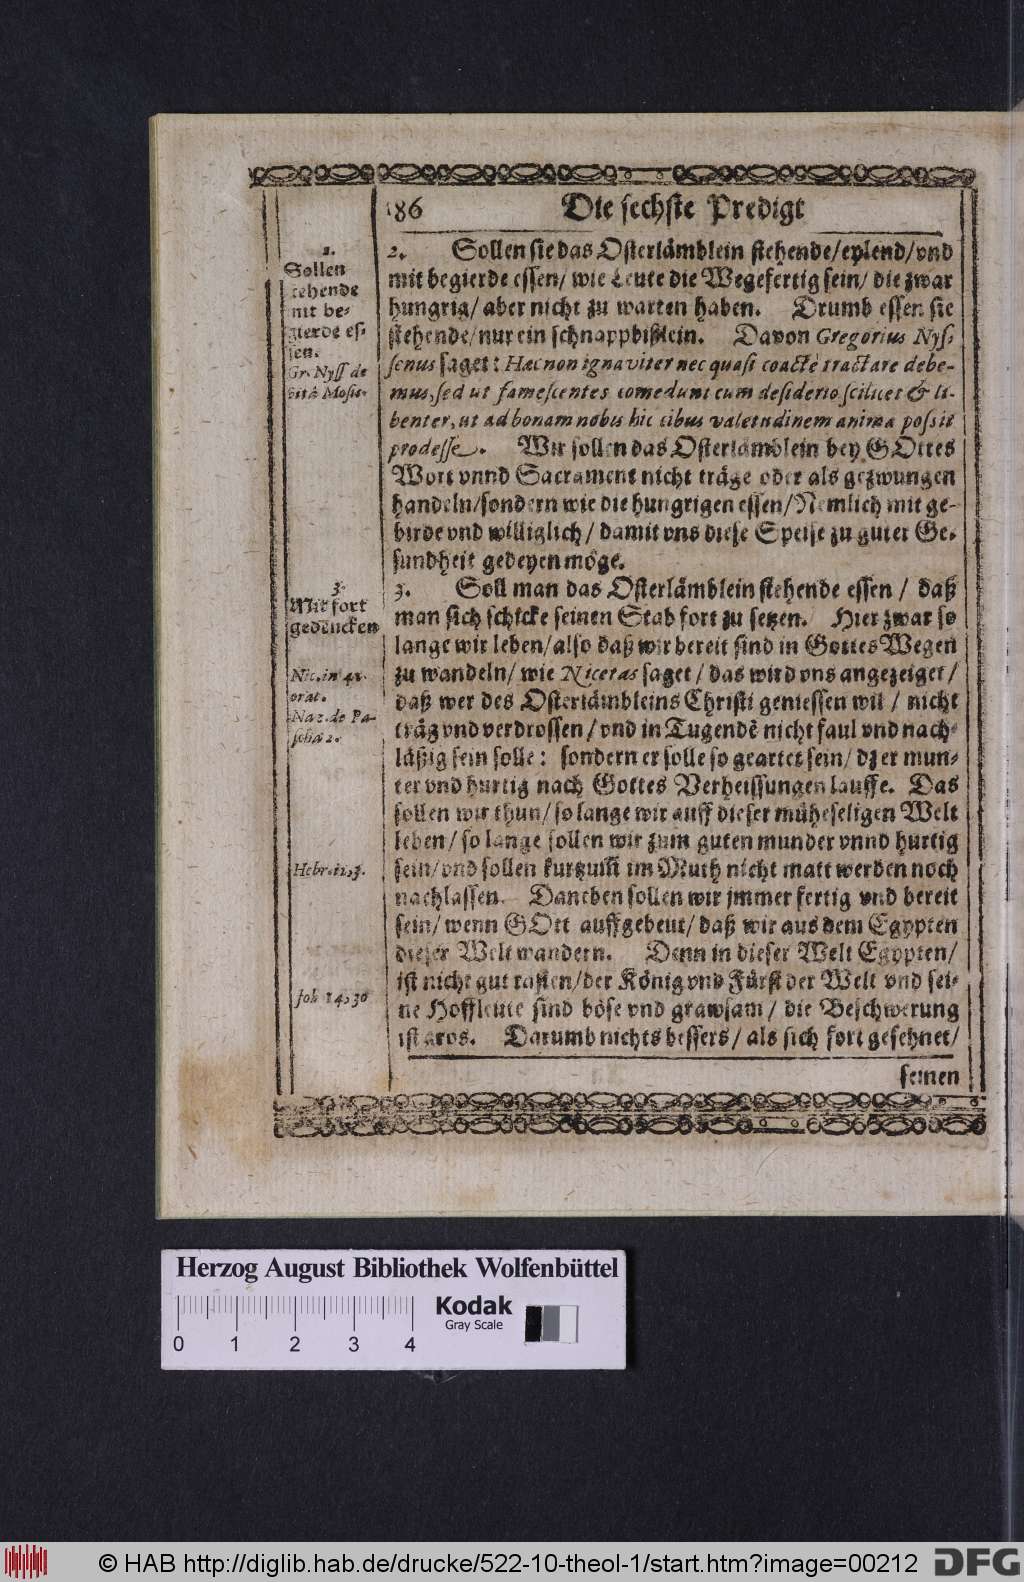 186 Die sechste Predigt
2.
Sollen
stehende
mit be-
gierde es-
sen.
Gr. Nyss de
vita Mosis.
2. Sollen sie das Osterlämblein stehende/eylend/vnd
mit begierde essen/ wie Leute die Wegefertig sein/ die zwar
hungrig/ aber nicht zu warten haben. Drumb essen sie
stehende/ nur ein schnappbißlein. Davon Gregorius Nys-
senus saget: Hæc non ignaviter nec quasi coactè tractare debe-
mus, sed ut famescentes comedunt cum desiderio scilicet & li-
benter, ut ad bonam nobis hic cibus valetudinem animæ possit
prodesse. Wir sollen das Osterlämblein bey GOttes
Wort vnnd Sacrament nicht träge oder als gezwungen
handeln/sondern wie die hungrigen essen/Nemlich mit ge-
birde vnd williglich/ damit vns diese Speise zu guter Ge-
sundheit gedeyen möge.
3.
Mit fort
gedencken
Nic. in 42.
orat.
Naz. de Pa-
scha 2.
Hebr. 12, 3.
Joh 14, 30
3. Soll man das Osterlämblein stehende essen / daß
man sich schicke seinen Stab fort zu setzen. Hier zwar so
lange wir leben/ also daß wir bereit sind in Gottes Wegen
zu wandeln/ wie Nicetas saget/ das wird vns angezeiget/
daß wer des Osterlämbleins Christi geniessen wil / nicht
träg vnd verdrossen/ vnd in Tugendē nicht faul vnd nach-
läßig sein solle: sondern er solle so geartet sein/ dz er mun-
ter vnd hurtig nach Gottes Verheissungen lauffe. Das
sollen wir thun/ so lange wir auff dieser müheseligen Welt
leben/ so lange sollen wir zum guten munder vnnd hurtig
sein/ vnd sollen kurtzum̄ im Muth nicht matt werden noch
nachlassen. Daneben sollen wir jmmer fertig vnd bereit
sein/ wenn GOtt auffgebeut/ daß wir aus dem Egypten
dieser Welt wandern. Denn in dieser Welt Egypten/
ist nicht gut rasten/der König vnd Fürst der Welt vnd sei-
ne Hoffleute sind böse vnd grawsam/ die Beschwerung
ist gros. Darumb nichts bessers/ als sich fort gesehnet/
seinen
Herzog August Bibliothek Wolfenbüttel
Kodak
Gray Scale
0 1 2 3 4
© HAB http://diglib.hab.de/drucke/522-10-theol-1/start.htm?image=00212
DFG